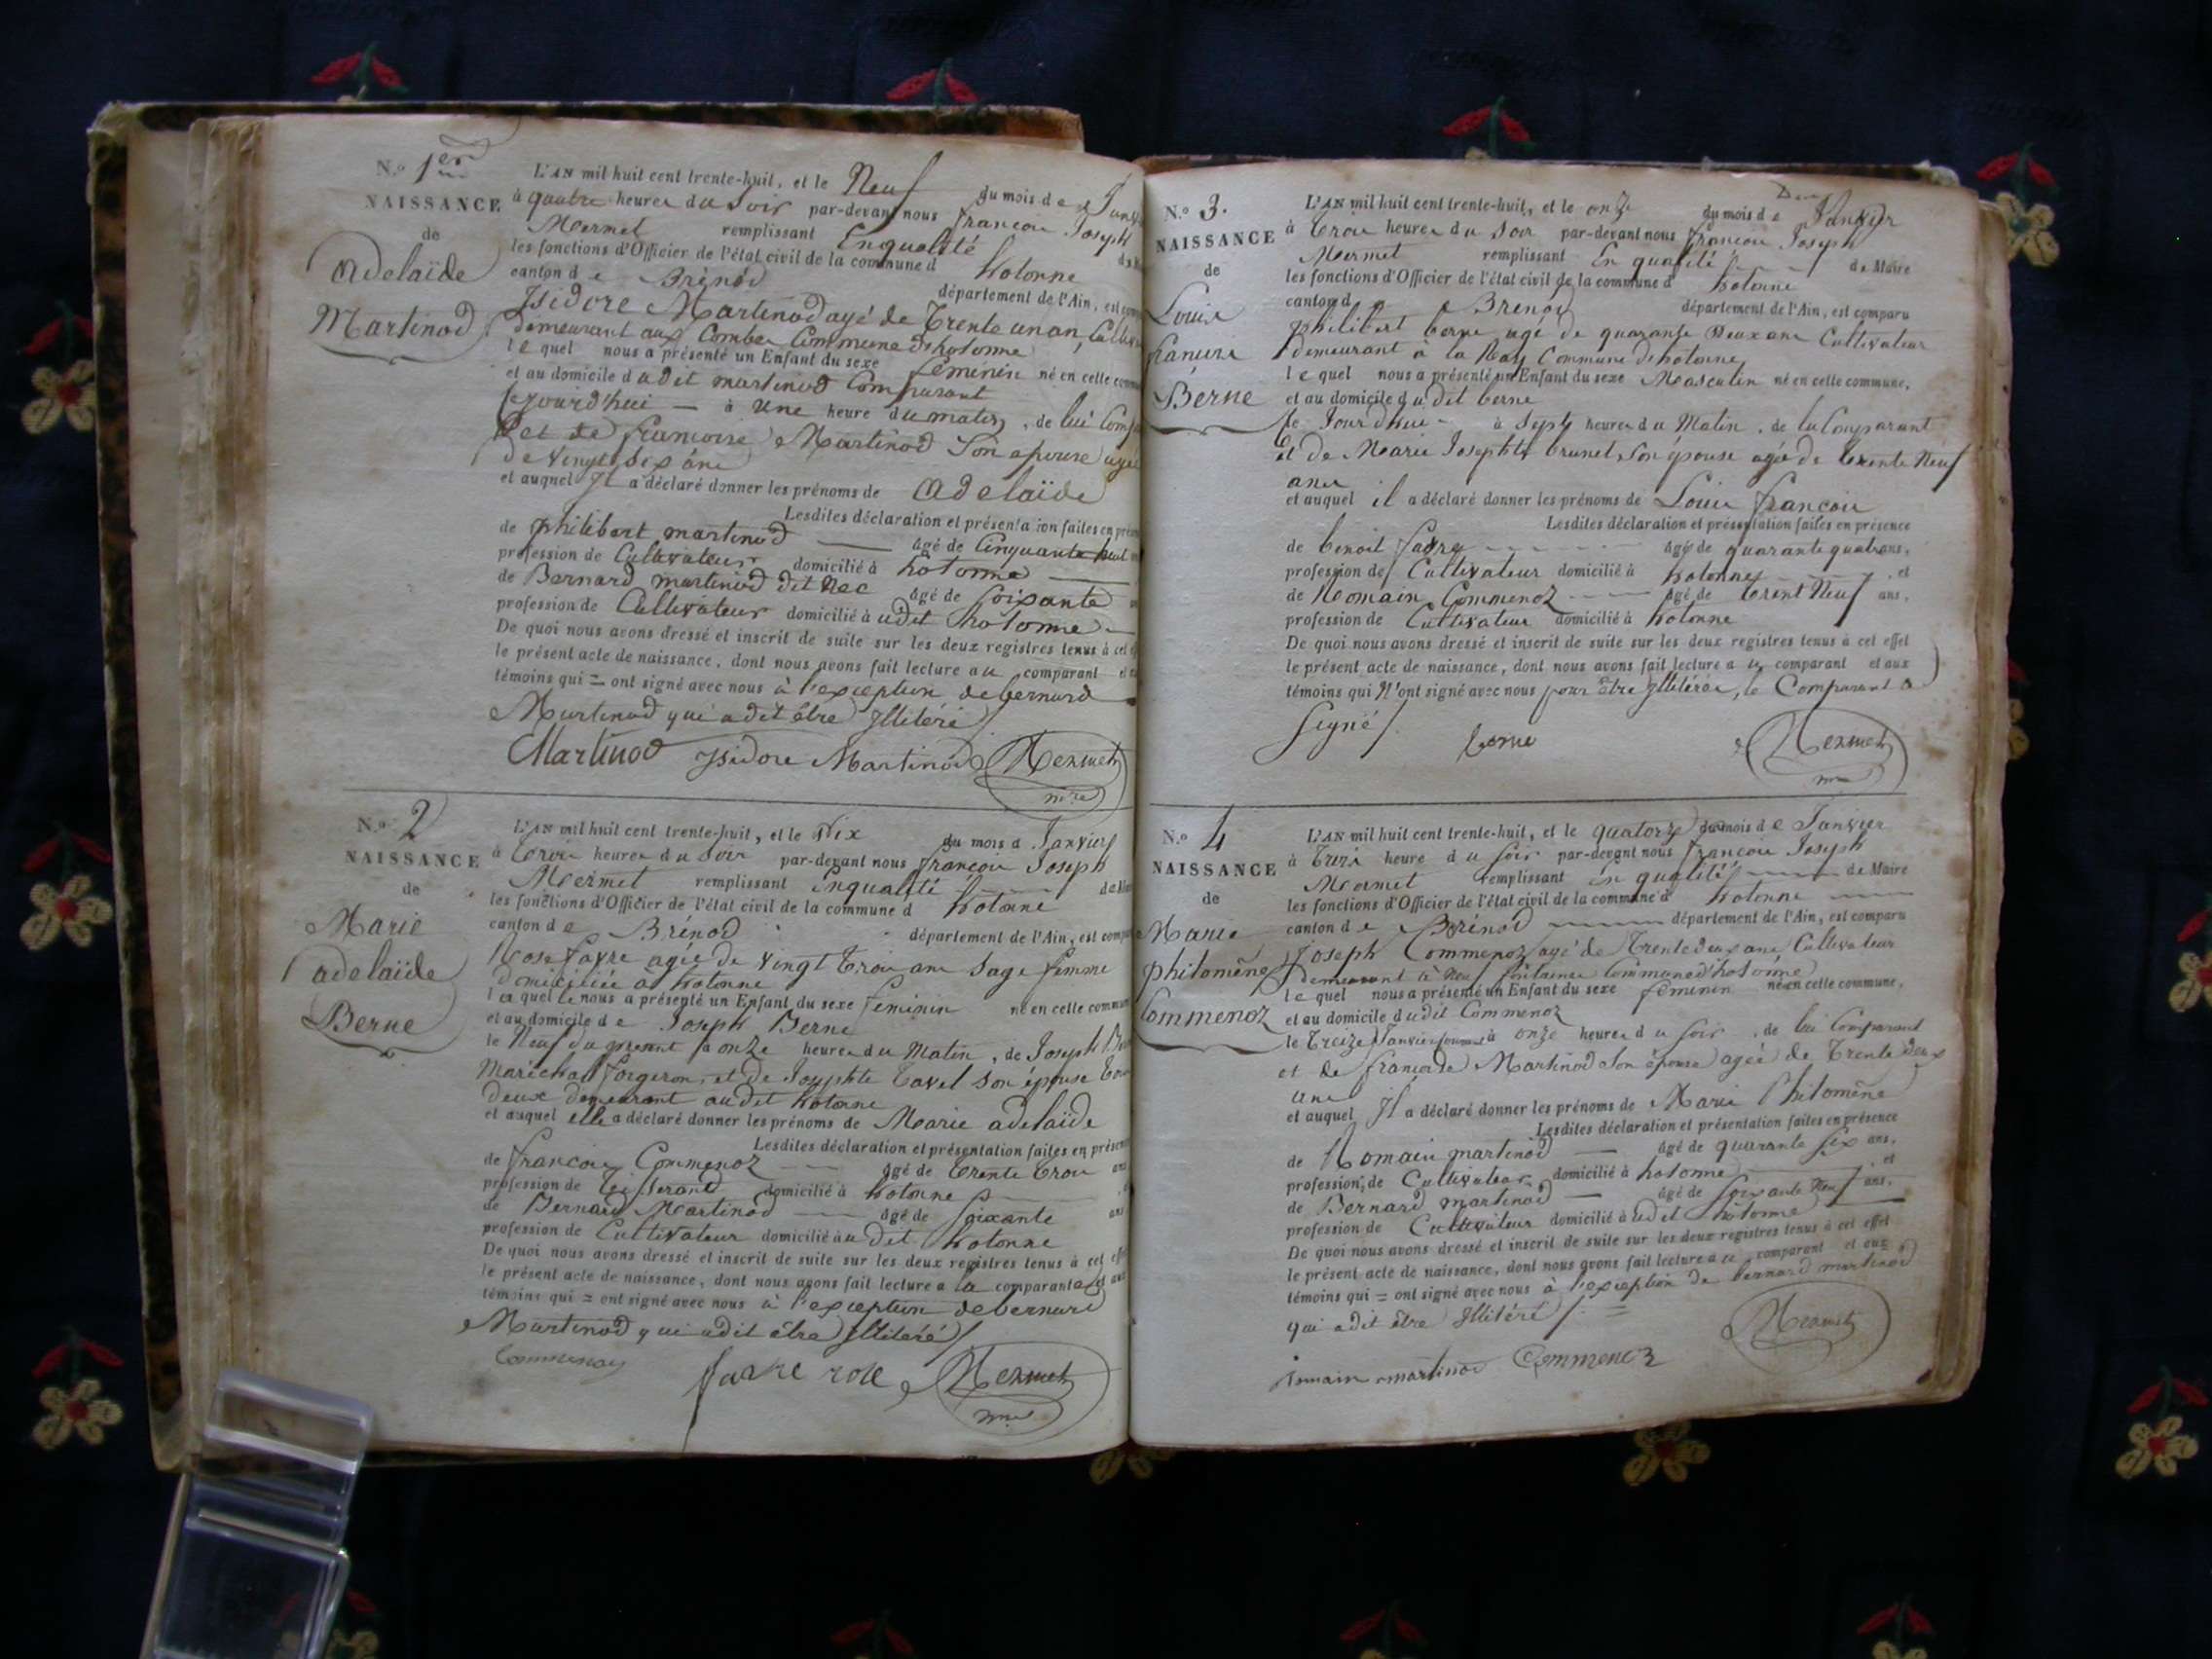 N.º 1er
NAISSANCE
de
Adelaïde
Martinod
L'AN mil huit cent trente-huit, et le Neuf du mois de
à quatre heures du Soir par-devant nous françois Joseph
Mermet remplissant En qualité
les fonctions d'Officier de l'état civil de la commune d hotonne
canton de Brénod département de l'Ain, est
Isidore Martinod agé de Trente un an,
demeurant aux Combes Commune d'hotonne
le quel nous a présenté un Enfant du sexe féminin né en cette
et au domicile dudit martinod Comparant
cejourd'hui — à Une heure du matin, de lui
et de francoise Martinod Son epouse
de vingt six ans
et auquel Il a déclaré donner les prénoms de Adelaïde
Lesdites déclaration et présentation faites en
de philibert martinod — âgé de Cinquante huit
profession de Cultivateur domicilié à hotonne —
de Bernard martinod dit âgé de Soixante
profession de Cultivateur domicilié à udit hotonne —
De quoi nous avons dressé et inscrit de suite sur les deux registres tenus à cet
le présent acte de naissance, dont nous avons fait lecture au comparant
témoins qui = ont signé avec nous à l'exception de bernard
Martinod qui a dit être Illitéré
Martinod Isidore Martinod Mermet
mre
N.º 2
NAISSANCE
de
Marie
adelaïde
Berne
L'AN mil huit cent trente-huit, et le Dix du mois d Janvier
à Trois heures du Soir par-devant nous françois Joseph
Mermet remplissant En qualité
les fonctions d'Officier de l'état civil de la commune d hotonne
canton de Brénod département de l'Ain, est
Rose favre agée de vingt trois ans Sage femme
domiciliée à hotonne
laquelle nous a présenté un Enfant du sexe féminin né en cette
et au domicile de Joseph Berne
le Neuf du présent à onze heures du Matin, de Joseph
Maréchal forgeron, et de Josephte Tavel Son épouse
deux demeurant audit hotonne
et auquel elle a déclaré donner les prénoms de Marie adelaïde
Lesdites déclaration et présentation faites en
de françois Commenoz âgé de Trente trois
profession de Tisserand domicilié à hotonne
de Bernard Martinod — âgé de Soixante
profession de Cultivateur domicilié à udit hotonne
De quoi nous avons dressé et inscrit de suite sur les deux registres tenus à cet
le présent acte de naissance, dont nous avons fait lecture a la comparante
témoins qui = ont signé avec nous à l'exception de bernard
Martinod qui a dit être Illitéré
Commenoz favre rose Mermet
N.º 3.
NAISSANCE
de
Louis
francois
Berne
L'AN mil huit cent trente-huit, et le onze du mois de Janvier
à Trois heures du soir par-devant nous françois Joseph
Mermet remplissant En qualité de Maire
les fonctions d'Officier de l'état civil de la commune d hotonne
canton d e Brenod département de l'Ain, est comparu
philibert berne agé de quarante Deux ans Cultivateur
demeurant à la Commune de hotonne
le quel nous a présenté un Enfant du sexe Masculin né en cette commune,
et au domicile dudit berne
ce Jourdhui - à Sept heures du Matin, de lui Comparant
et de Marie Josephte brunet Son épouse agée de trente Neuf
ans
et auquel il a déclaré donner les prénoms de Louis francois
Lesdites déclaration et présentation faites en présence
de benoit favre âgé de quarante quatre ans,
profession de Cultivateur domicilié à hotonne, et
de Romain Commenoz âgé de trent Neuf ans,
profession de Cultivateur domicilié à hotonne
De quoi nous avons dressé et inscrit de suite sur les deux registres tenus à cet effet
le présent acte de naissance, dont nous avons fait lecture a u comparant et aux
témoins qui N'ont signé avec nous pour être Illitérés, le Comparant a
Signé
berne Mermet
N.º 4
NAISSANCE
de
Marie
philomène
Commenoz
L'AN mil huit cent trente-huit, et le quatorze du mois de Janvier
à heure du soir par-devant nous françois Joseph
Mermet remplissant en qualité de Maire
les fonctions d'Officier de l'état civil de la commune d hotonne
canton de Brénod département de l'Ain, est comparu
Joseph Commenoz agé de Trente deux ans Cultivateur
demeurant à fontaines Commune d'hotonne
le quel nous a présenté un Enfant du sexe féminin né en cette commune,
et au domicile dudit Commenoz
le Treize Janvier à onze heures du soir, de lui Comparant
et de francoise Martinod Son épouse agée de Trente deux
ans
et auquel Il a déclaré donner les prénoms de Marie Philomène
Lesdites déclaration et présentation faites en présence
de Romain martinod — âgé de quarante six ans,
profession de Cultivateur domicilié à hotonne, et
de Bernard martinod — âgé de Soixante Neuf ans,
profession de Cultivateur domicilié à udit hotonne
De quoi nous avons dressé et inscrit de suite sur les deux registres tenus à cet effet
le présent acte de naissance, dont nous avons fait lecture a u comparant et aux
témoins qui = ont signé avec nous à l'exception de bernard martinod
qui a dit être Illitéré
Mermet
romain martinod Commenoz